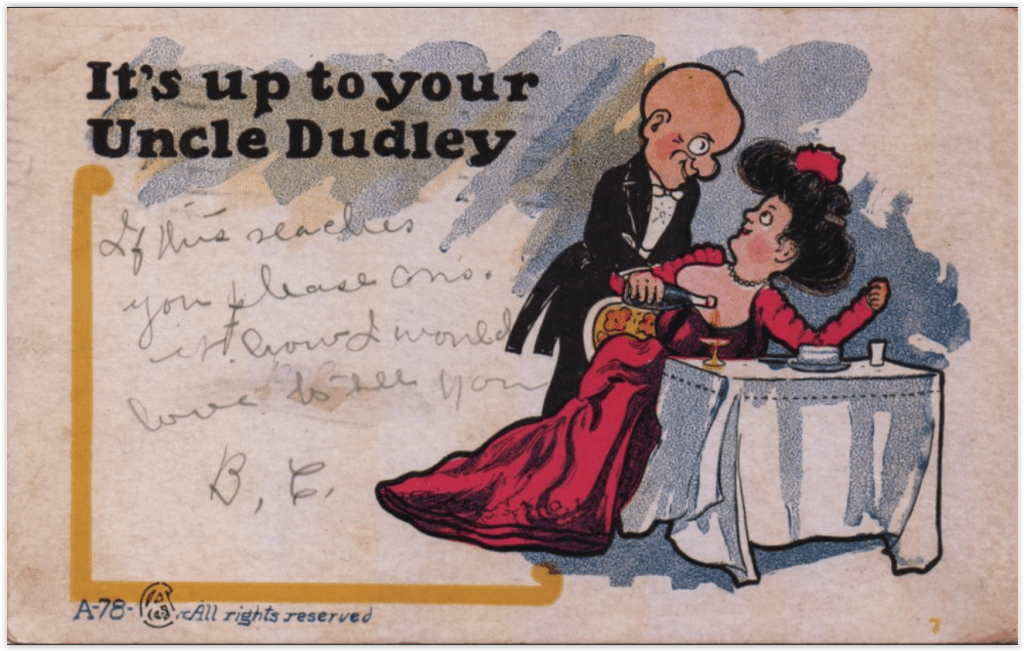 It's up to your
Uncle Dudley
If this reaches
you please ans.
it. how I would
love to see you
B. C.
A-78-
All rights reserved
7